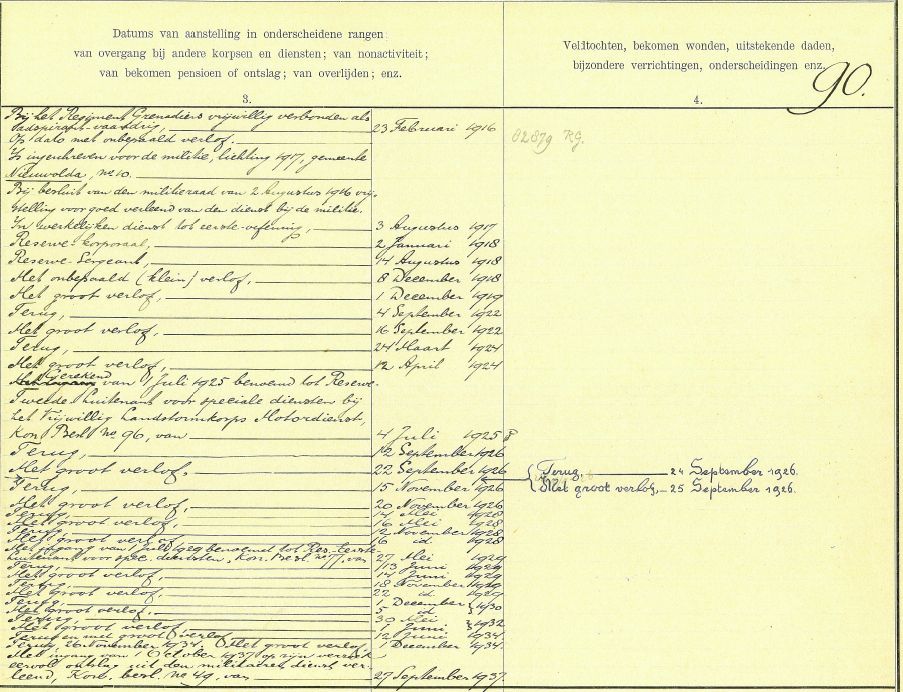 Datums van aanstelling in onderscheidene rangen
van overgang bij andere korpsen en diensten; van nonactiviteit;
van bekomen pensioen of ontslag; van overlijden; enz.
3.
Veldtochten, bekomen wonden, uitstekende daden,
bijzondere verrichtingen, onderscheidingen enz.
4.
90.
Bij het Regiment Grenadiers vrijwillig verbonden als
adspirant-vaandrig, 23 Februari 1916
02879 RG.
Op dato met onbepaald verlof.
Is ingeschreven voor de militie, lichting 1917, gemeente
Nieuwolda, no 10.
Bij besluit van den militieraad van 2 Augustus 1916 vrij-
stelling voorgoed verleend van den dienst bij de militie.
In werkelijken dienst tot eerste-oefening, 3 Augustus 1917
Reserve-korporaal, 2 Januari 1918
Reserve-Sergeant, 14 Augustus 1918
Met onbepaald (klein) verlof, 8 December 1918
Met groot verlof, 1 December 1919
Terug, 4 September 1922
Met groot verlof, 16 September 1922
Terug, 24 Maart 1924
Met groot verlof, 12 April 1924
Gerekend
van 1 Juli 1925 benoemd tot Reserve-
Tweede Luitenant voor speciale diensten bij
het Vrijwillig Landstormkorps Motordienst,
Kon. Besl. no 96, van 4 Juli 1925
Terug, 12 September 1926
Met groot verlof, 22 September 1926
Terug, 24 September 1926.
Met groot verlof, 25 September 1926.
Terug, 15 November 1926
Met groot verlof, 20 November 1926
Terug, 14 Mei 1928
Met groot verlof, 16 Mei 1928
Terug, 12 November 1928
Met groot verlof 16 id 1928
Met ingang van 1 Juli 1929 benoemd tot Res. Eerste-
Luitenant voor spec. diensten, Kon. Besl. no 77, van 27 Mei 1929
Terug, 13 Juni 1929
Met groot verlof, 14 Juni 1929
Terug, 18 November 1929
Met groot verlof, 22 id. 1929
Terug, 1 December 1930
Met groot verlof, 5 id
Terug, 30 Mei 1932
Met groot verlof, 1 Juni
Terug en met groot verlof 12 Juni 1934.
Terug, 26 November 1934. Met groot verlof 1 December 1934.
Met ingang van 1 October 1937 op zijn verzoek
eervol ontslag uit den militairen dienst ver-
leend, Kon. besl. no 49, van 27 September 1937.